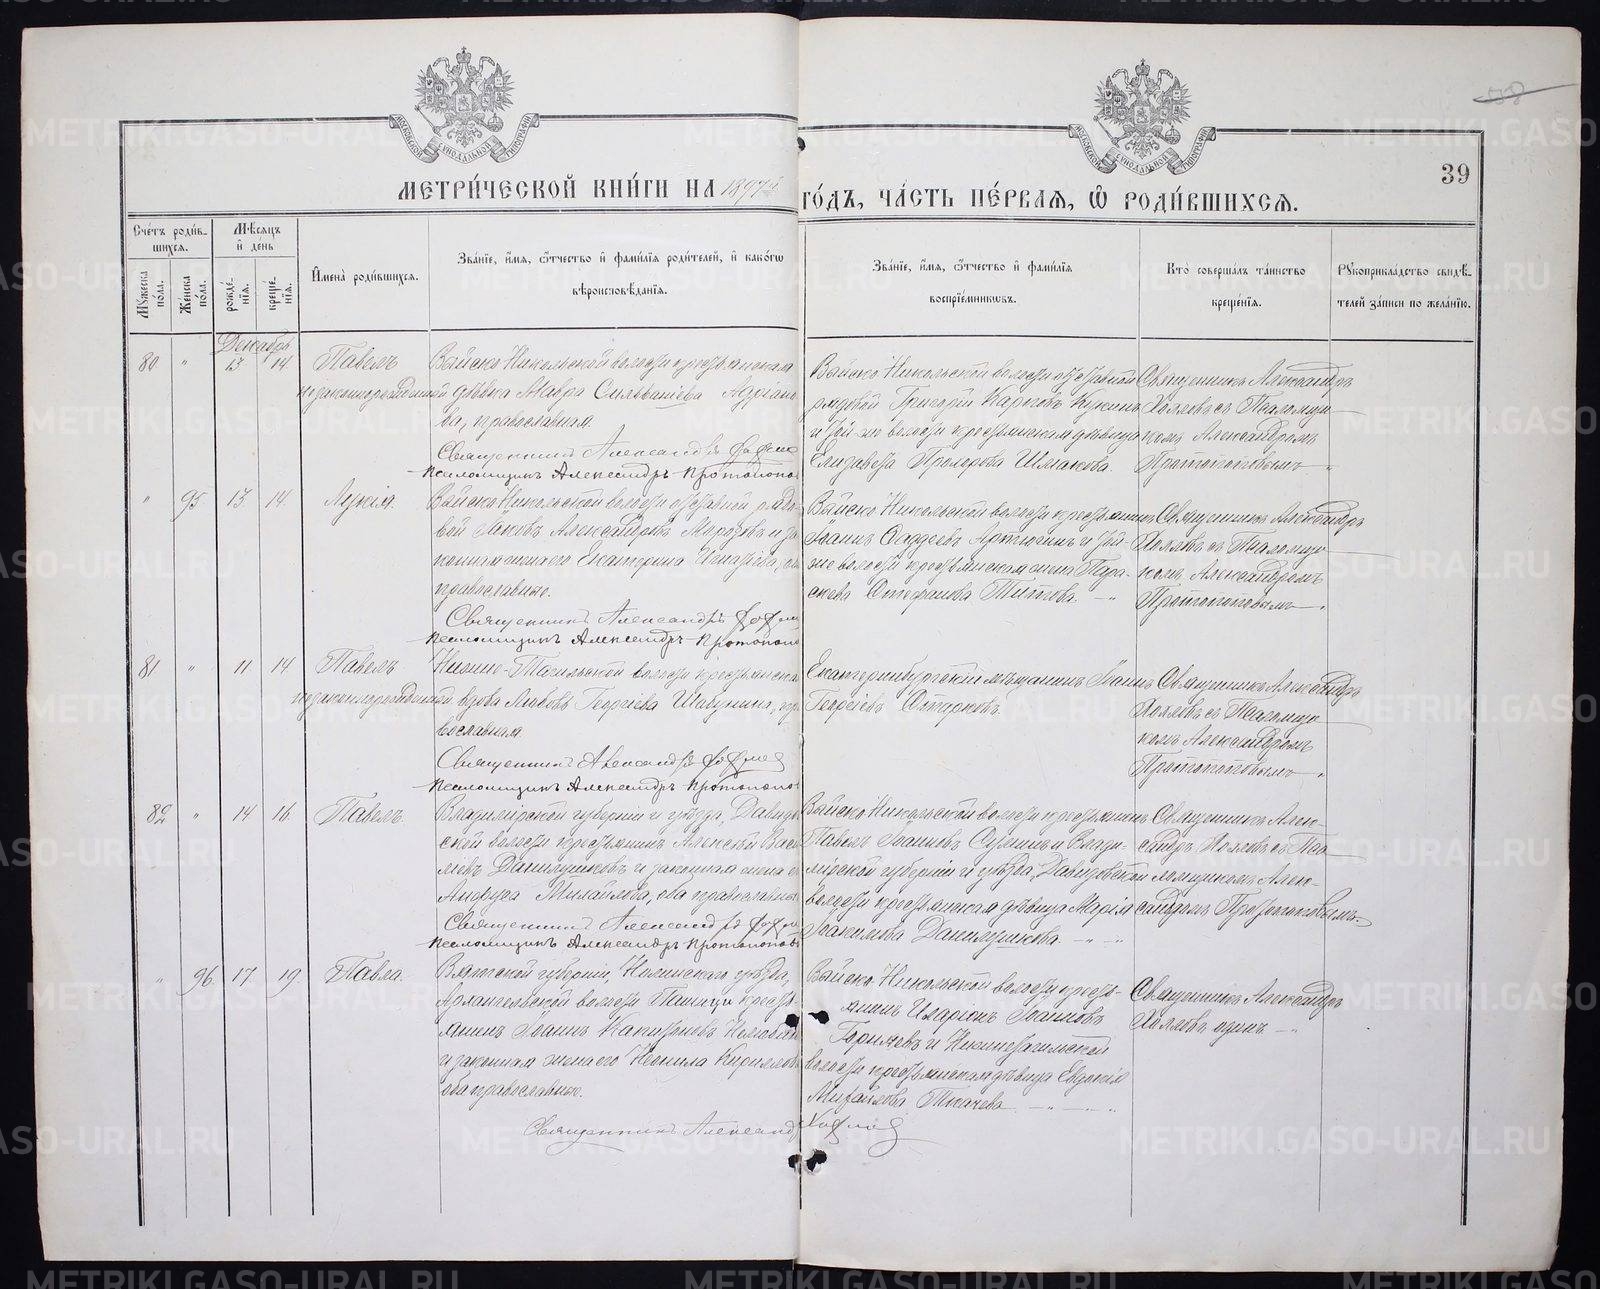 МЕТРИ́ЧЕСКОЙ КНИ́ГИ НА 1897й ГО́ДЪ, ЧА́СТЬ ПЕ́РВАѦ, Ѽ РОДИ́ВШИХСѦ.
39
Сче́тъ роди́в-
шихсѧ.
Мꙋ́жеска
по́ла.
Же́нска
по́ла.
Мѣ́сѧцъ
и҆ день
рожде́-
нїѧ.
креще́-
нїѧ.
И҆мена̀ роди́вшихсѧ.
Зва́нїе, и҆́мѧ, ѻ҆́тчество и҆ фами́лїѧ роди́телей, и҆ како́гѡ
вѣроисповѣ́данїѧ.
Зва́нїе, и҆́мѧ, ѻ҆́тчество и҆ фами́лїѧ
воспрїе́мникѡвъ.
Кто̀ соверша́лъ та́инство
креще́нїѧ.
Рꙋкоприкла́дство свидѣ́-
телей за́писи по жела́нїю.
Декабрь
80 " 13 14 Павелъ
незаконнорожденный
Выйско Никольской волости крестьянская
дѣвка Мавра Сильвашева Адріано-
ва, православная.
Священникъ Александръ
Псаломщикъ Александръ Протопопов
Выйско Никольской волости отставной
рядовой Григорій Карповъ Кукинъ
и той же волости крестьянская дѣвица
Елизавета Прохорова Шмакова.
Священникъ Александръ
Холмовъ съ Псаломщи-
комъ Александромъ
Протопоповымъ "
" 95 13 14 Лукія.
Выйско Никольской волости отставной рядо-
вой Іаковъ Александровъ Морозовъ и за
конная жена его Екатерина Игнатіева,
православные.
Священникъ Александръ
Псаломщикъ Александръ Протопопо
Выйско Никольской волости крестьянинъ
Іоаннъ Фаддеевъ Артюгинъ и той-
же волости крестьянская жена Пара-
скева Стефанова Титова.
Священникъ Александръ
Холмовъ съ Псаломщи-
комъ Александромъ
Протопоповымъ "
81 " 11 14 Павелъ
незаконнорожденный
Нижне-Тагильской волости крестьянска
вдова Любовь Георгіева Шабунина, пра
вославная
Священникъ Александръ
Псаломщикъ Александръ Протопопо
Екатеринбургскій мѣщанинъ Іоаннъ
Георгіевъ Отарковъ.
Священникъ Александръ
Холмовъ съ Псаломщи-
комъ Александромъ
Протопоповымъ "
82 " 14 16 Павелъ.
Владимірской губерніи и уѣзда, Давыдов
ской волости крестьянинъ Алексѣй Васи
льевъ Данилушковъ и законная жена е
Анфуса Михайлова, оба православные
Священникъ Александръ
Псаломщикъ Александръ Протопоповъ
Выйско Никольской волости крестьянинъ
Павелъ Іоанновъ и Влади-
мірской губерніи и уѣзда, Давыдовской
волости крестьянская дѣвица Марія
Іоакимова Данилушкова.
Священникъ Алек-
сандръ Холмовъ съ Пса-
ломщикомъ Алек-
сандромъ Протопоповымъ
" 96 17 19 Павла.
Вятской губерніи, Нолинскаго уѣзда,
Архангельской волости крестья-
янинъ Іоаннъ
и законная жена его Неонила Кириллова
оба православные.
Священникъ Александръ
Выйско Никольской волости кресть-
янинъ Иларіонъ Іоанновъ
Горячевъ и Нижнетагильской
волости крестьянская дѣвица Евдокія
Михайлова Ткачева.
Священникъ Александръ
Холмовъ одинъ.
METRIKI.GASO-URAL.RU